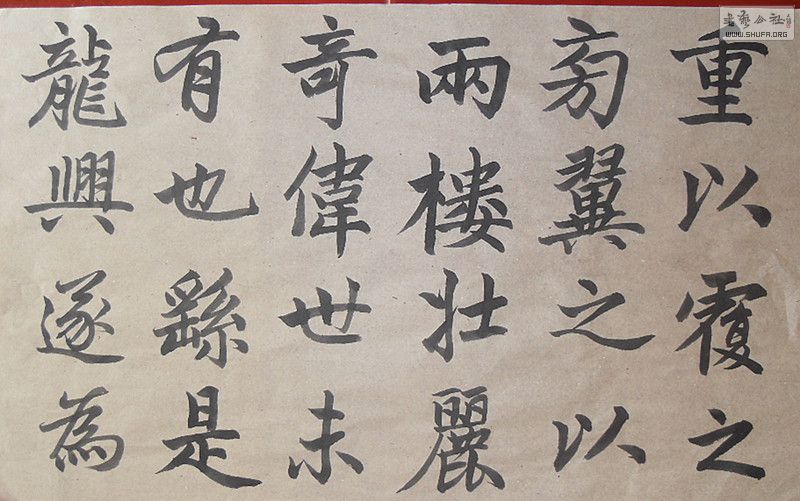 重以覆之
旁翼之以
兩樓壯麗
竒偉世未
有也繇是
龍興遂為
书艺公社
WWW.SHUFA.ORG